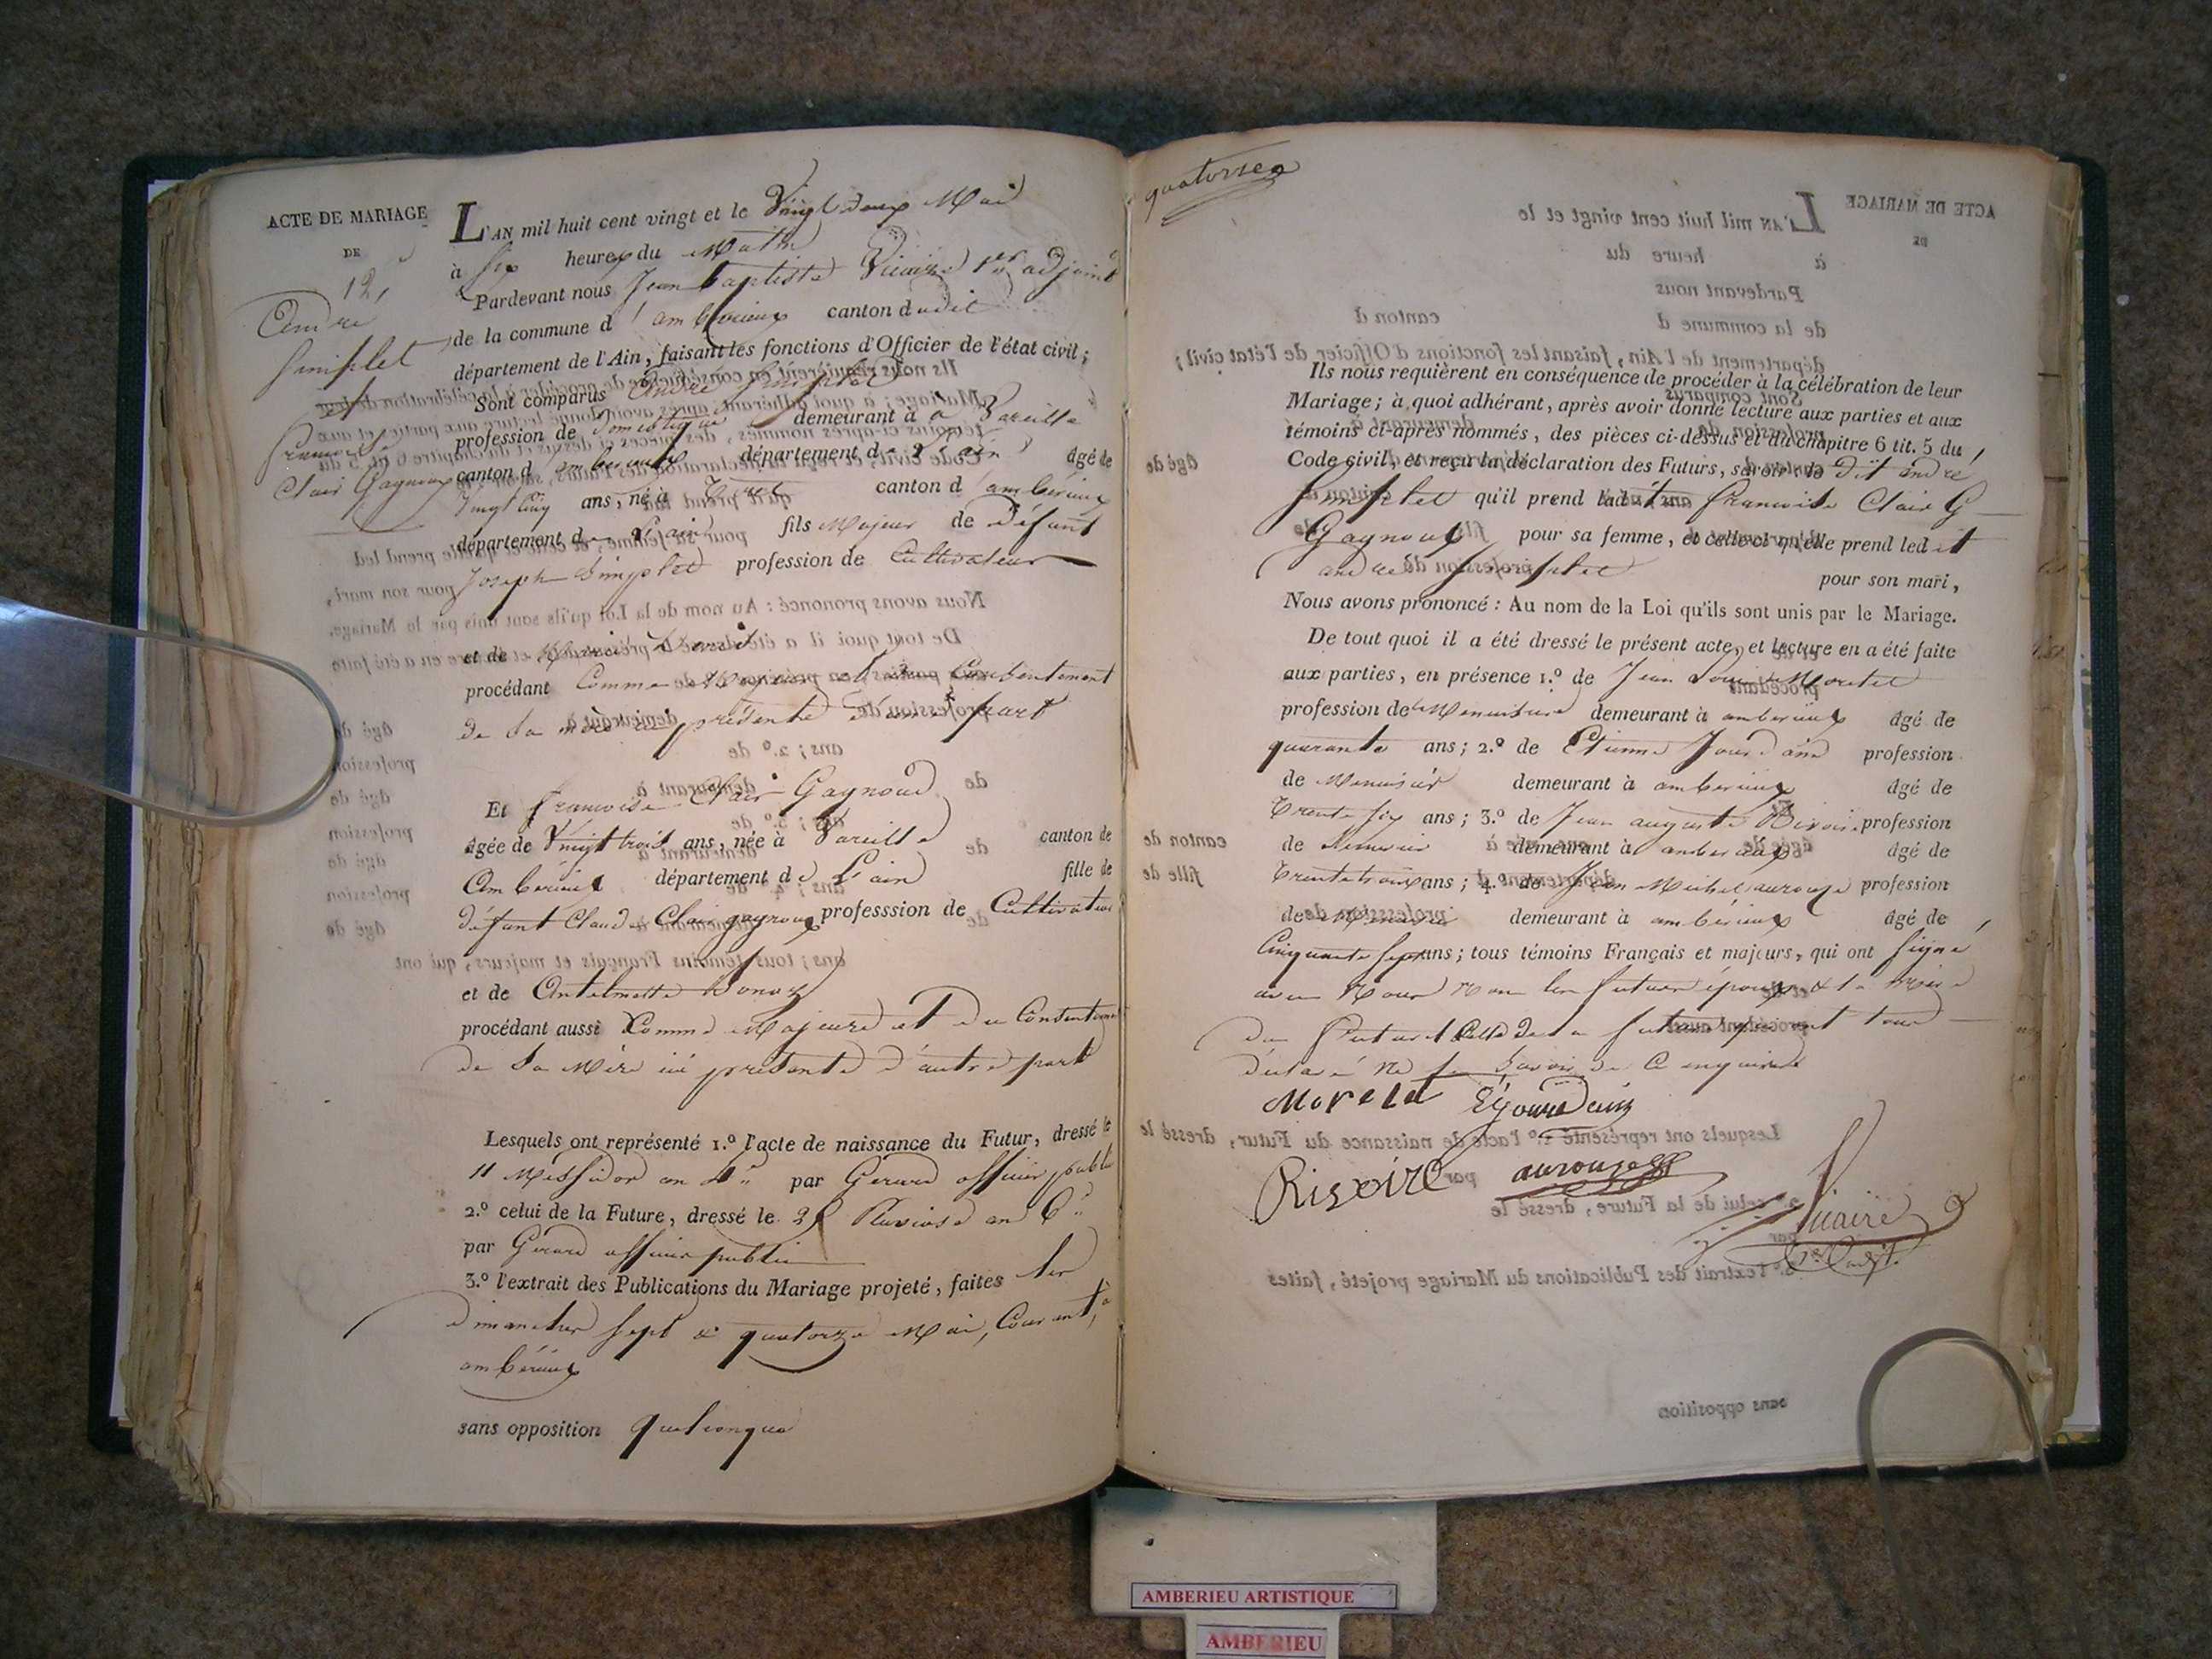 ACTE DE MARIAGE
DE
12,
André
Simplet
et
Françoise
Clair Gagnoux
L'AN mil huit cent vingt et le Vingt deux Mai
à Six heures du Matin
Pardevant nous Jean Baptiste Vicaire 1er adjoint
de la commune d'ambérieux canton dudit
département de l'Ain, faisant les fonctions d'Officier de l'état civil;
Sont comparus André Simplet
profession de Domestique demeurant à Vareille
canton d'ambérieux département de l'ain âgé de
Vingt Cinq ans, né à canton d'ambérieux
département de L'ain fils Majeur de Défunt
Joseph Simplet profession de Cultivateur
et de
procédant Comme Majeur Consentement
de Sa mère ici présente d'une part
Et Françoise Clair Gagnoud
âgée de Vingt trois ans, née à Vareille canton de
Ambérieux département de L'ain fille de
défunt Claude Clair gagnoux professsion de Cultivateur
et de Antelmette Bonaz
procédant aussi Comme Majeure et Du Consentement
de Sa Mère ici présente d'autre part
Lesquels ont représenté 1.º l'acte de naissance du Futur, dressé le
11 Messidor an par Gerard officier public
2.º celui de la Future, dressé le Pluviose an 6
par Gerard officier public
3.º l'extrait des Publications du Mariage projeté, faites les
dimanches Sept & quatorze Mai, Courant, à
ambérieux
sans opposition quelconque
quatorze
Ils nous requièrent en conséquence de procéder à la célébration de leur
Mariage; à quoi adhérant, après avoir donné lecture aux parties et aux
témoins ci-après nommés, des pièces ci-dessus et du chapitre 6 tit. 5 du
Code civil, et reçu la déclaration des Futurs, savoir: le Dit andré
Simplet qu'il prend ladite françoise Clair G
Gagnoux pour sa femme, et celle-ci qu'elle prend ledit
andré Simplet pour son mari,
Nous avons prononcé: Au nom de la Loi qu'ils sont unis par le Mariage.
De tout quoi il a été dressé le présent acte, et lecture en a été faite
aux parties, en présence 1.º de Jean Louis Moretet
profession de Menuisier demeurant à amberieux âgé de
quarante ans; 2.º de Etienne Jourdain profession
de Menuisier demeurant à amberieux âgé de
trente six ans; 3.º de Jean auguste profession
de demeurant à amberieux âgé de
trente trois ans; 4.º de Jean Michel aurouze profession
de demeurant à ambérieux âgé de
Cinquante Sept ans; tous témoins Français et majeurs, qui ont Signé
avec Nous Non les futurs époux & la Mère
du futur et Celle de la future qui ont tous
déclaré ne le Savoir de Ce enquis
Moretet EJourdain
aurouze
Vicaire
1er adjt.
AMBERIEU ARTISTIQUE
AMBERIEU